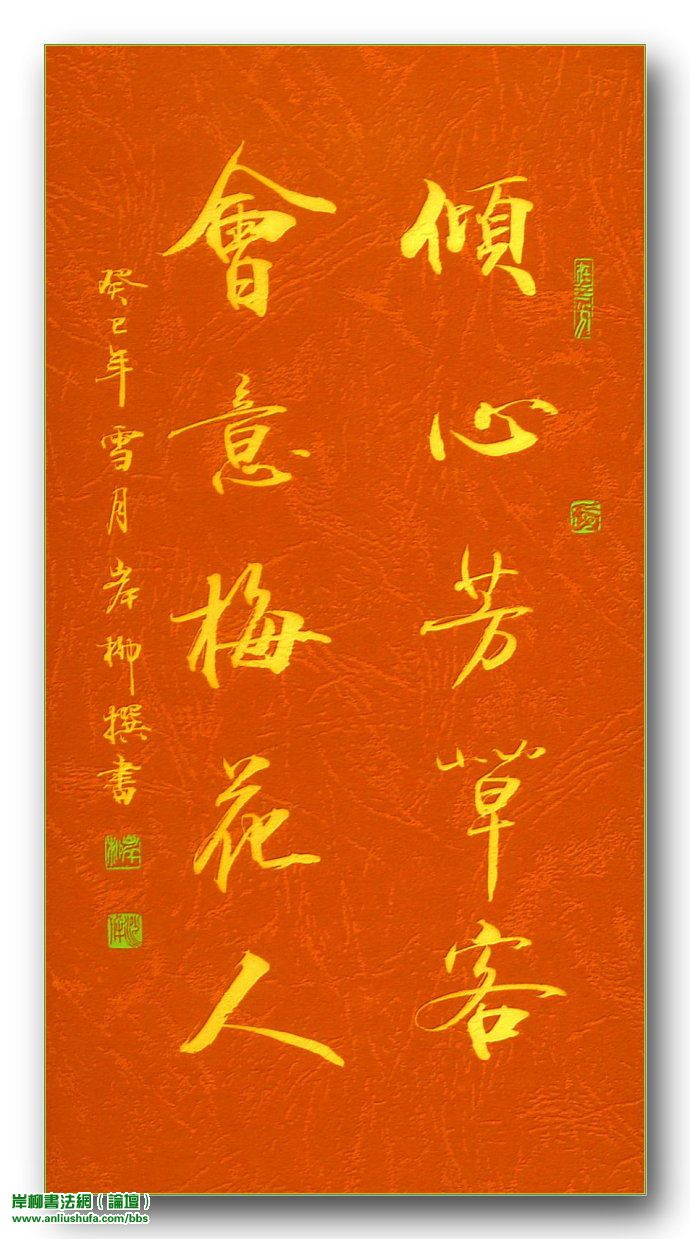 傾心芳草客
會意梅花人
癸巳年雪月岸柳撰書
岸柳書法網（論壇）
www.anliushufa.com/bbs